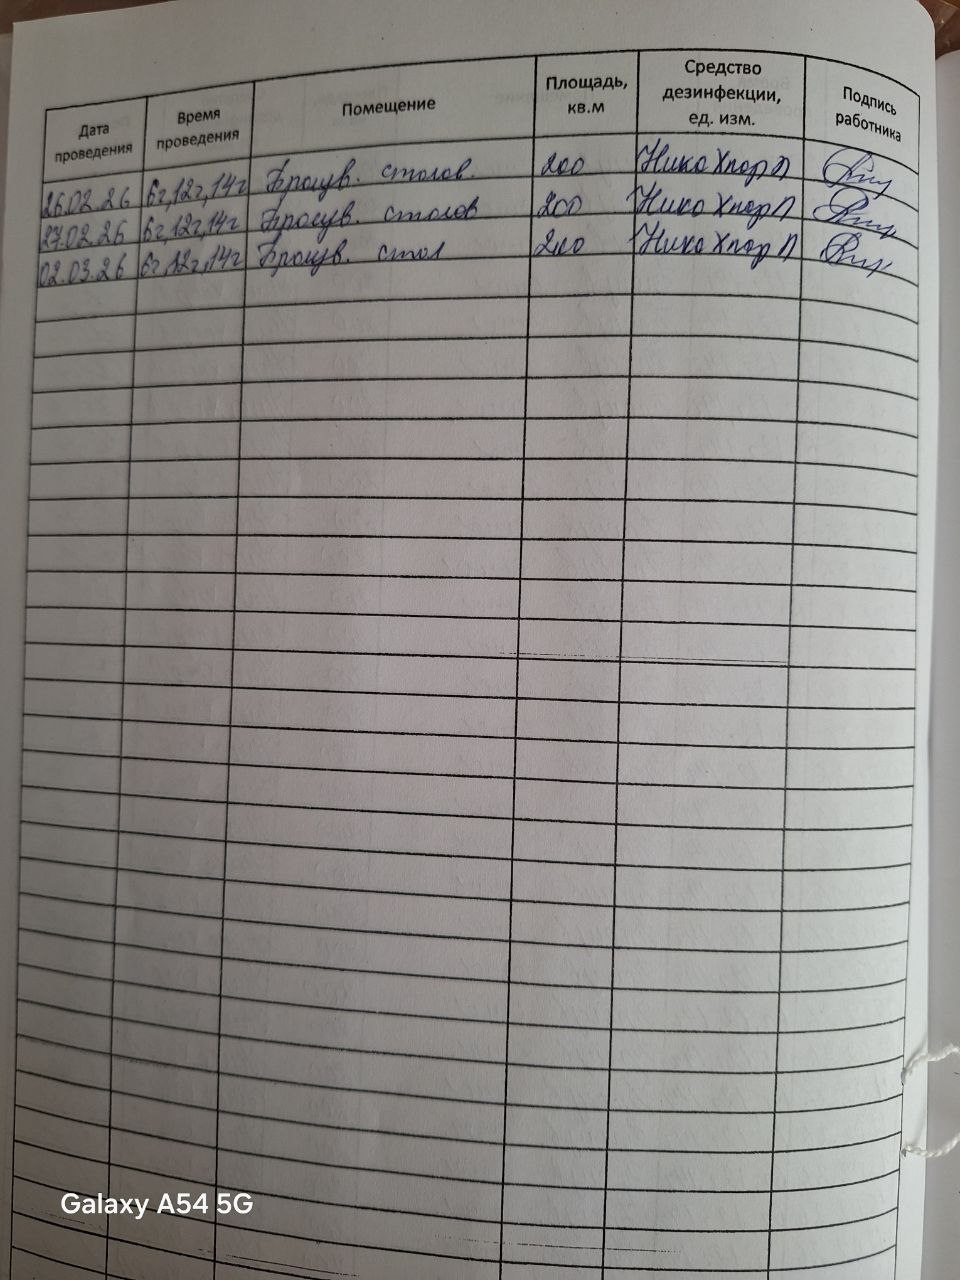 Дата проведения Время проведения Помещение Площадь, кв.м Средство дезинфекции, ед. изм. Подпись работника
26.02.26 6ч,12ч,14ч столов. 200 Ника Хлор П
27.02.26 6ч,12ч,14ч столов 200 Ника Хлор П
02.03.26 6ч,12ч,14ч стол 200 Ника Хлор П
Galaxy A54 5G